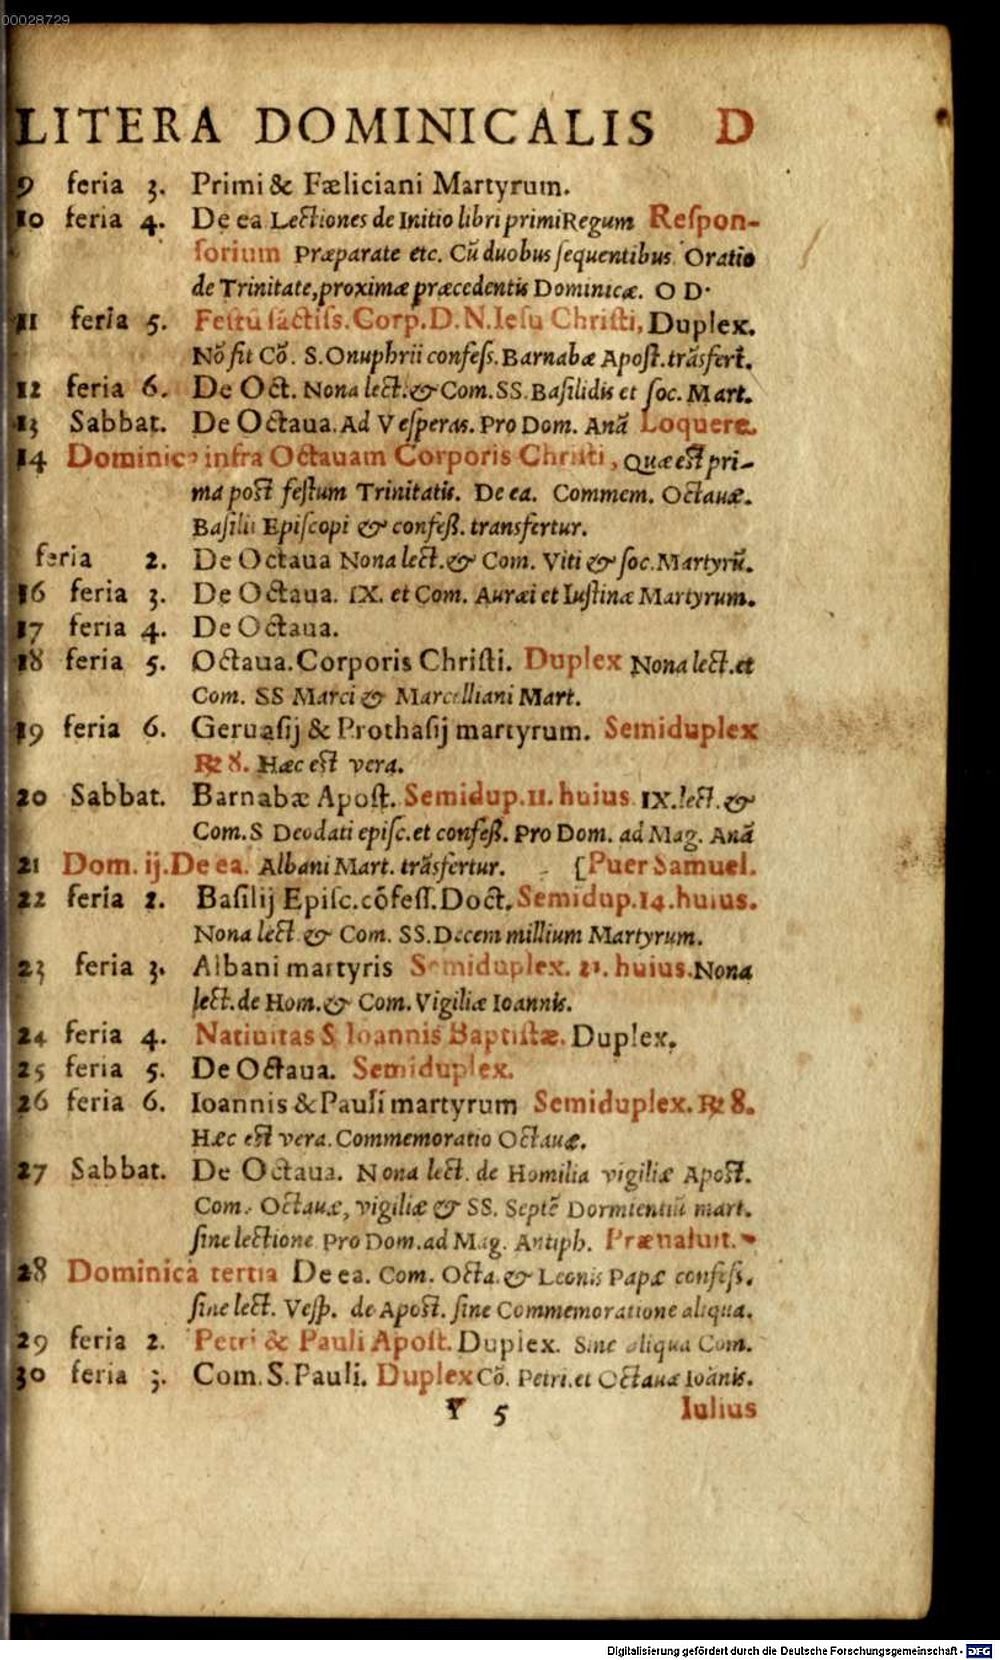 00028729
LITERA DOMINICALIS D
9 feria 3. Primi & Fæliciani Martyrum.
10 feria 4. De ea Lectiones de Initio libri primi Regum Reſpon-
ſorium Præparate etc. Cū duobus ſequentibus Oratio
de Trinitate, proximæ præcedentis Dominicæ. O D.
11 feria 5. Feſtū ſāctiſs. Corp. D. N. Ieſu Chriſti, Duplex.
Nō fit Cō. S. Onuphrii confeſs. Barnabæ Apoſt. trāsfert.
12 feria 6. De Oct. Nona lect. & Com. SS. Baſilidis et ſoc. Mart.
13 Sabbat. De Octaua. Ad Veſperas. Pro Dom. Anā Loquere.
14 Dominica infra Octauam Corporis Chriſti, Quæ eſt pri-
ma poſt feſtum Trinitatis. De ea. Commem. Octauæ.
Baſilii Epiſcopi & confeß. transfertur.
feria 2. De Octaua Nona lect. & Com. Viti & ſoc. Martyrū.
16 feria 3. De Octaua. IX. et Com. Auræi et Iuſtinæ Martyrum.
17 feria 4. De Octaua.
18 feria 5. Octaua. Corporis Chriſti. Duplex Nona lect. et
Com. SS Marci & Marcelliani Mart.
19 feria 6. Geruaſij & Prothaſij martyrum. Semiduplex
℞ 8. Hæc eſt vera.
20 Sabbat. Barnabæ Apoſt. Semidup. 11. huius IX. lect. &
Com. S Deodati epiſc. et confeß. Pro Dom. ad Mag. Anā
21 Dom. ij. De ea. Albani Mart. trāsfertur. [Puer Samuel.
22 feria 2. Baſilij Epiſc. cōfeſſ. Doct. Semidup. 14. huius.
Nona lect & Com. SS. Decem millium Martyrum.
23 feria 3. Albani martyris Semiduplex. 21. huius. Nona
lect. de Hom. & Com. Vigiliæ Ioannis.
24 feria 4. Natiuitas S Ioannis Baptiſtæ. Duplex.
25 feria 5. De Octaua. Semiduplex.
26 feria 6. Ioannis & Pauli martyrum Semiduplex. ℞ 8.
Hæc eſt vera. Commemoratio Octauæ.
27 Sabbat. De Octaua. Nona lect. de Homilia vigiliæ Apoſt.
Com. Octauæ, vigiliæ & SS. Septē Dormientiū mart.
ſine lectione Pro Dom. ad Mag. Antiph. Præualuit.
28 Dominica tertia De ea. Com. Octa. & Leonis Papæ confeſs.
ſine lect. Veſp. de Apoſt. ſine Commemoratione aliqua.
29 feria 2. Petri & Pauli Apoſt. Duplex. Sine aliqua Com.
30 feria 3. Com. S. Pauli. Duplex Cō. Petri. et Octauæ Ioānis.
Y 5 Iulius
Digitalisierung gefördert durch die Deutsche Forschungsgemeinschaft - DFG